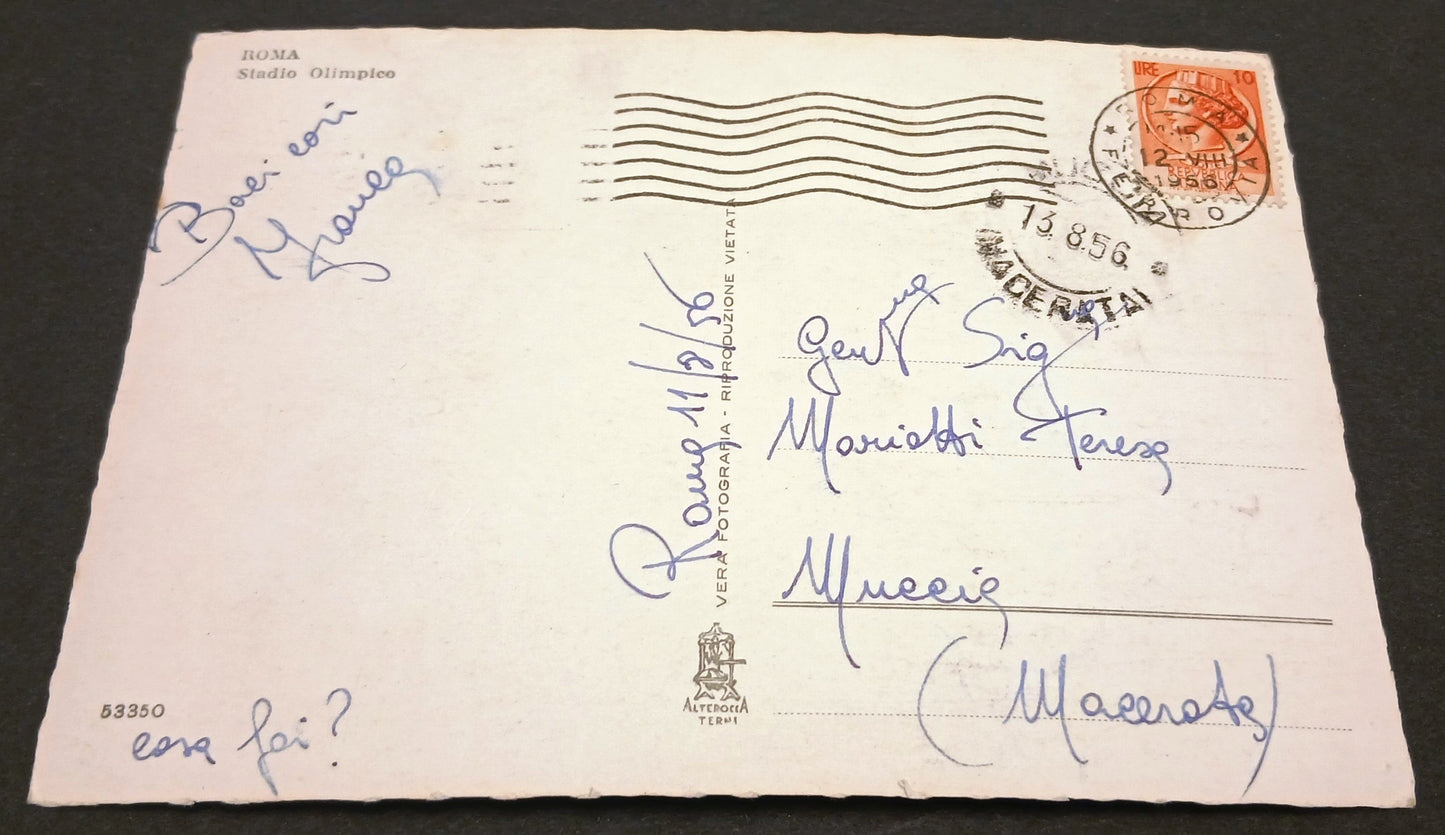 ROMA
Stadio Olimpico
Baci cari
Franca
53350
cosa fai?
Roma 11/8/56
VERA FOTOGRAFIA - RIPRODUZIONE VIETATA
ALTEROCCA
TERNI
LIRE 10
ROMA
12 VIII
1956
FERROVIA
13.8.56
MACERATA
Gent.ma Sig.na
Mariotti Teresa
Muccia
(Macerata)